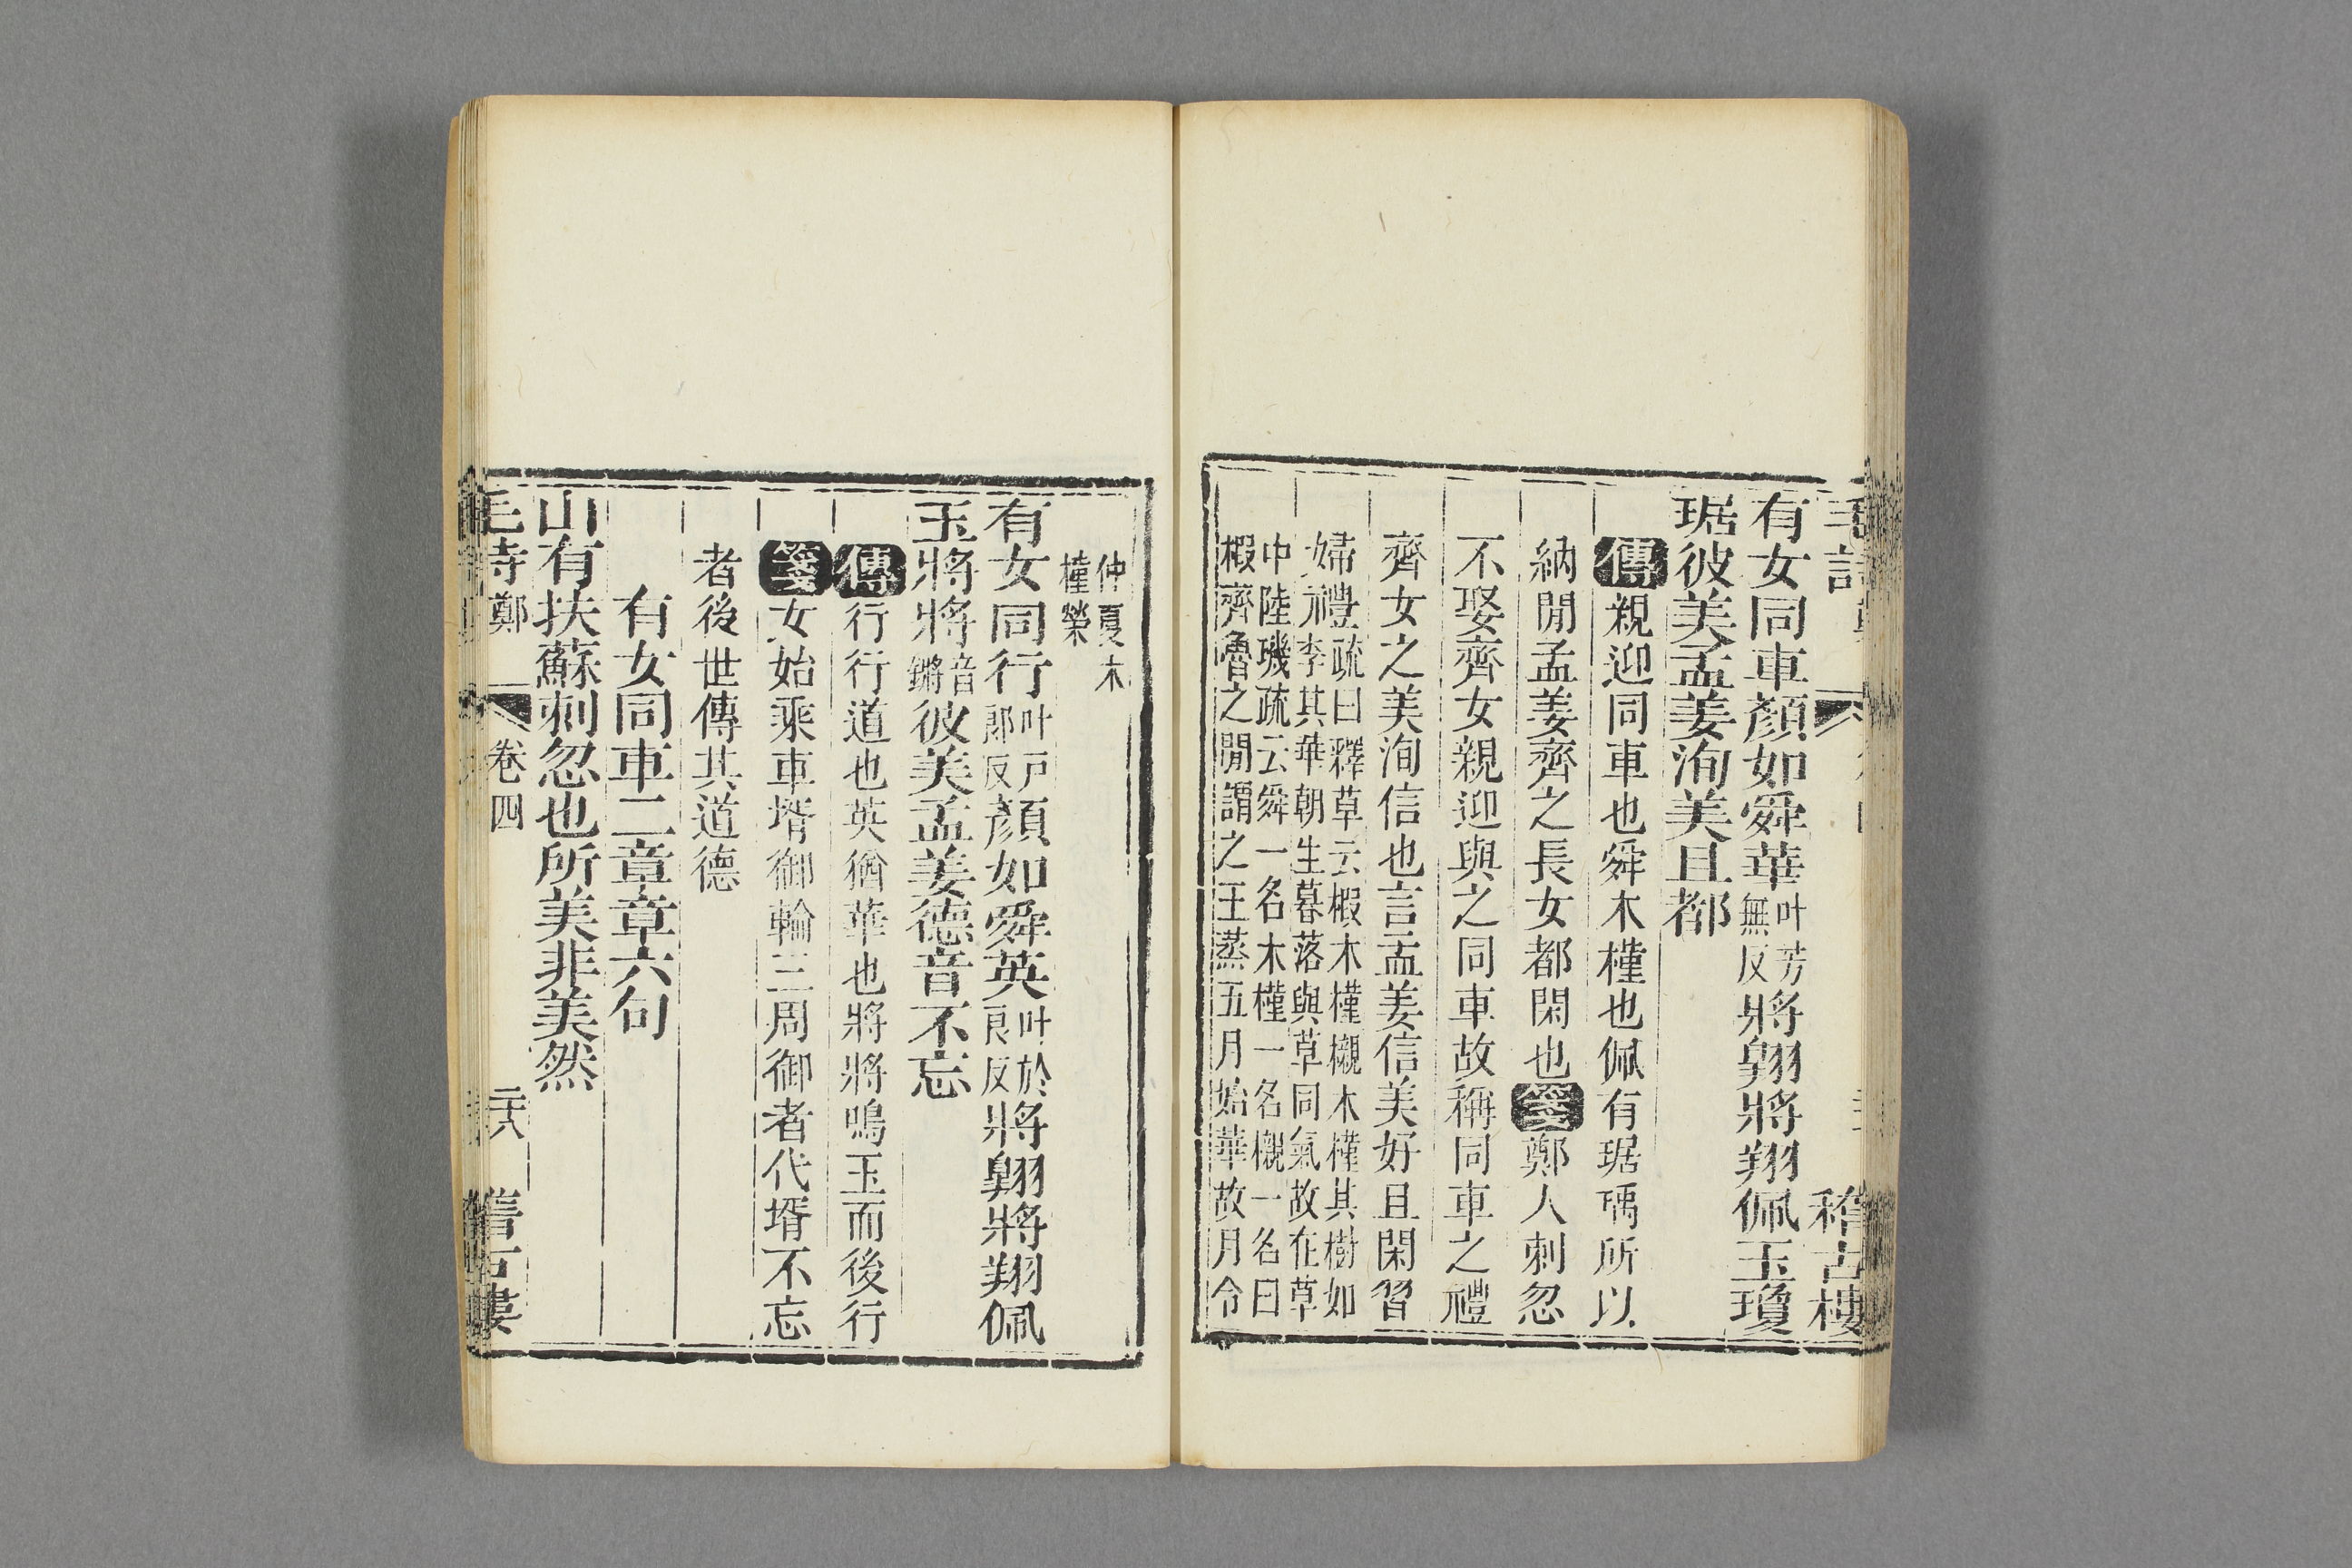 有女同車顏如舜華叶芳無反將翱將翔佩玉瓊
琚彼美孟姜洵美且都
傳親迎同車也舜木槿也佩有琚瑀所以
納閒孟姜齊之長女都閑也箋鄭人刺忽
不娶齊女親迎與之同車故稱同車之禮
齊女之美洵信也言孟姜信美好且閑習
婦禮疏曰釋草云椵木槿櫬木槿其樹如
李其華朝生暮落與草同氣故在草
中陸璣疏云舜一名木槿一名櫬一名曰
椵齊魯之閒謂之王蒸五月始華故月令
稽古樓
仲夏木
槿榮
有女同行叶戸郎反顏如舜英叶於良反將翱將翔佩
玉將將音鏘彼美孟姜德音不忘
傳行行道也英猶華也將將鳴玉而後行
箋女始乘車壻御輪三周御者代壻不忘
者後世傳其道德
有女同車二章章六句
山有扶蘇刺忽也所美非美然
毛詩鄭 卷四 二十八